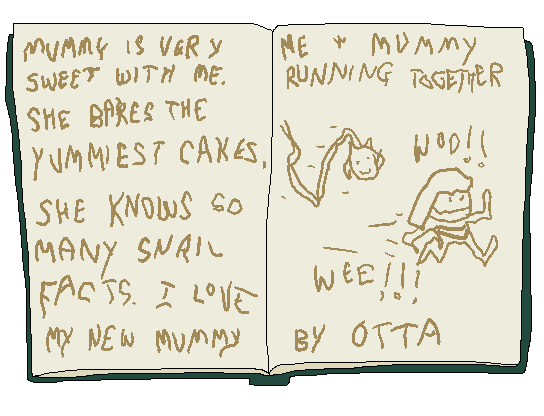 MUMMY IS VERY
SWEET WITH ME.
SHE BAKES THE
YUMMIEST CAKES.
SHE KNOWS SO
MANY SNAIL
FACTS. I LOVE
MY NEW MUMMY
ME + MUMMY
RUNNING TOGETHER
WOO!!
WEE!!!
BY OTTA